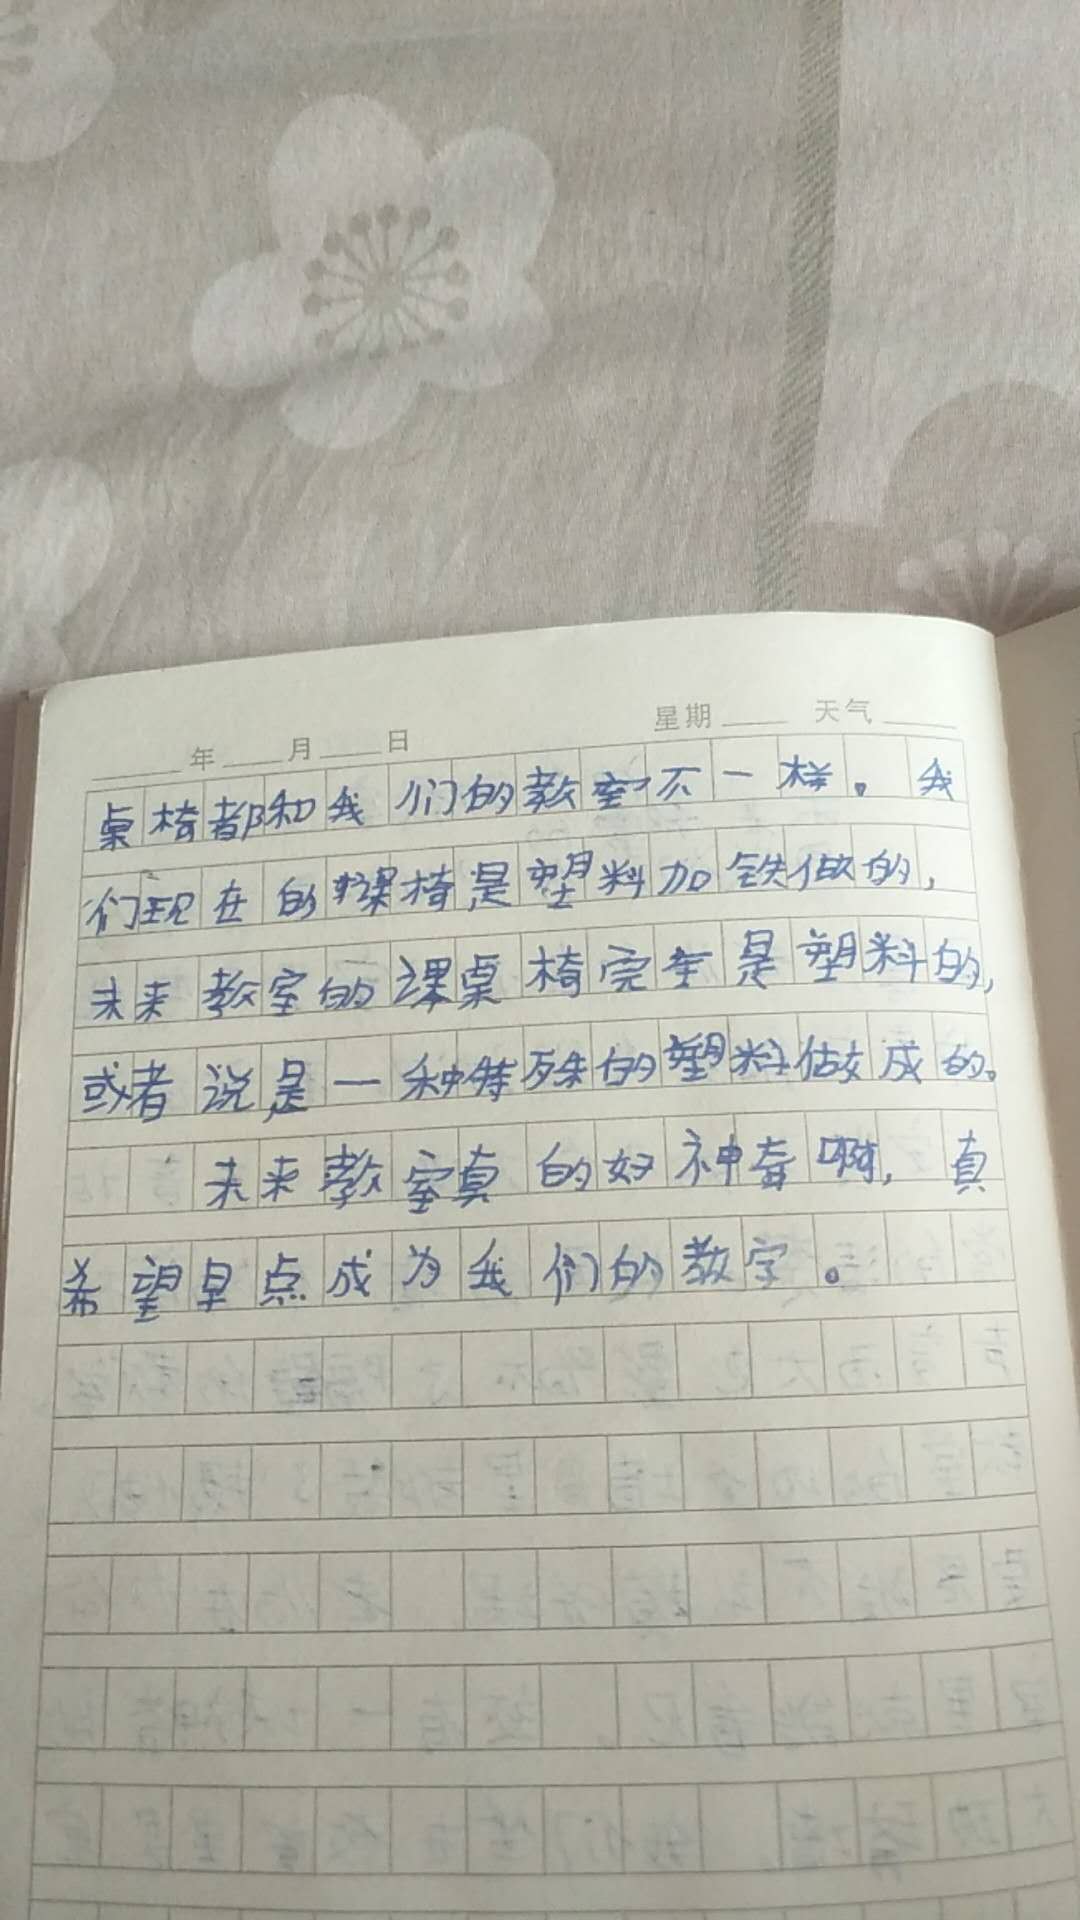 年 月 日 星期 天气
桌椅都和我们的教室不一样。我
们现在的课椅是塑料加铁做的,
未来教室的课桌椅完全是塑料的,
或者说是一种特殊的塑料做成的。
未来教室真的好神奇啊,真
希望早点成为我们的教字。